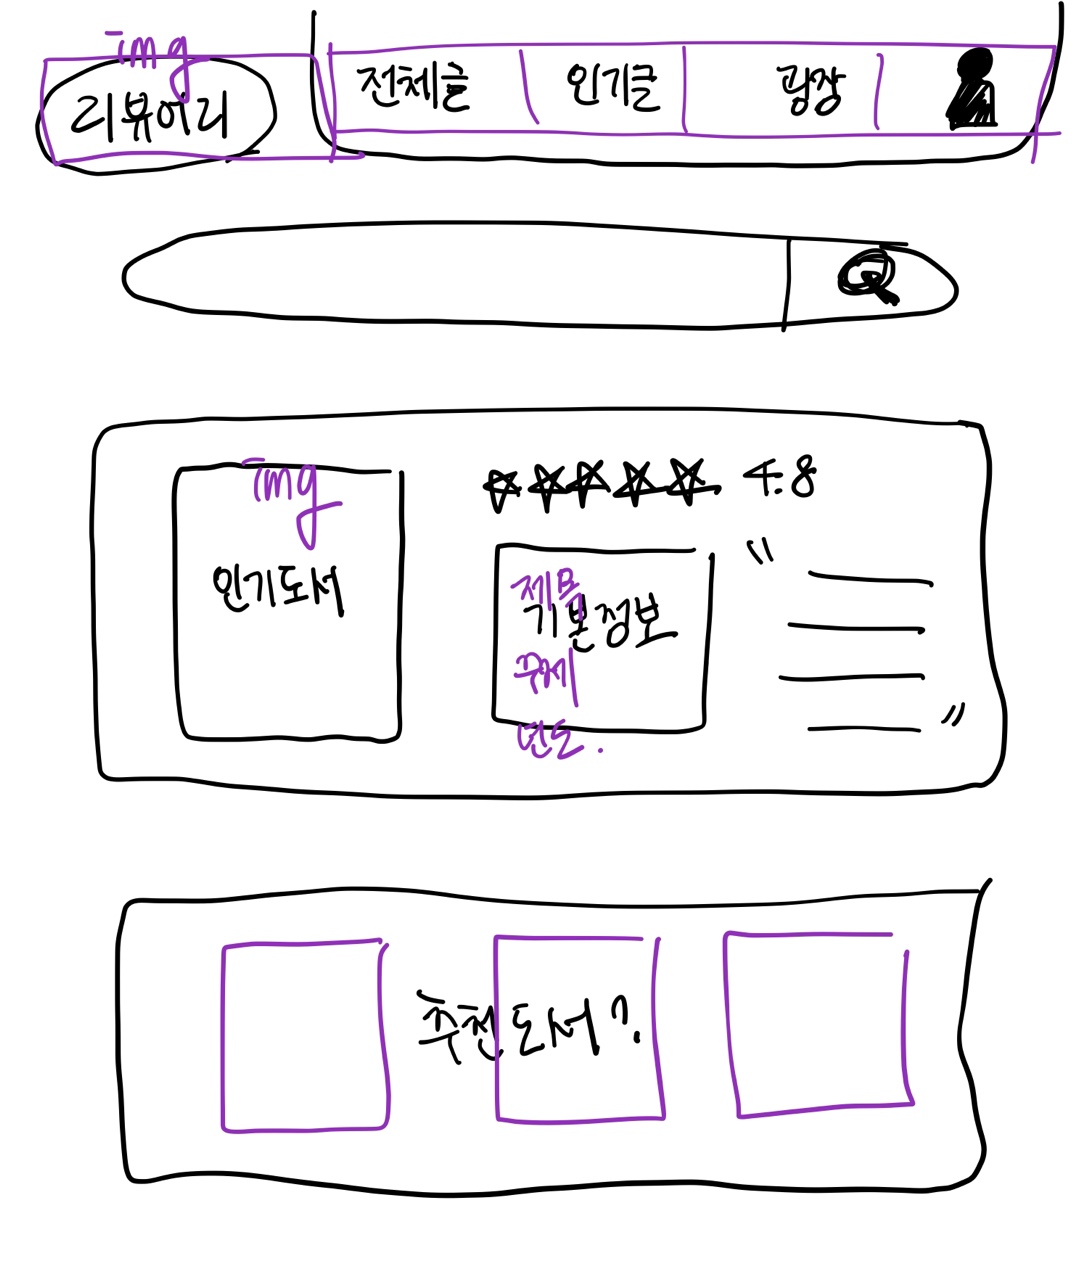 img
리뷰어리
전체글
인기글
광장
img
인기도서
4.8
제목
기본정보
주제
연도.
"
"
추천도서?